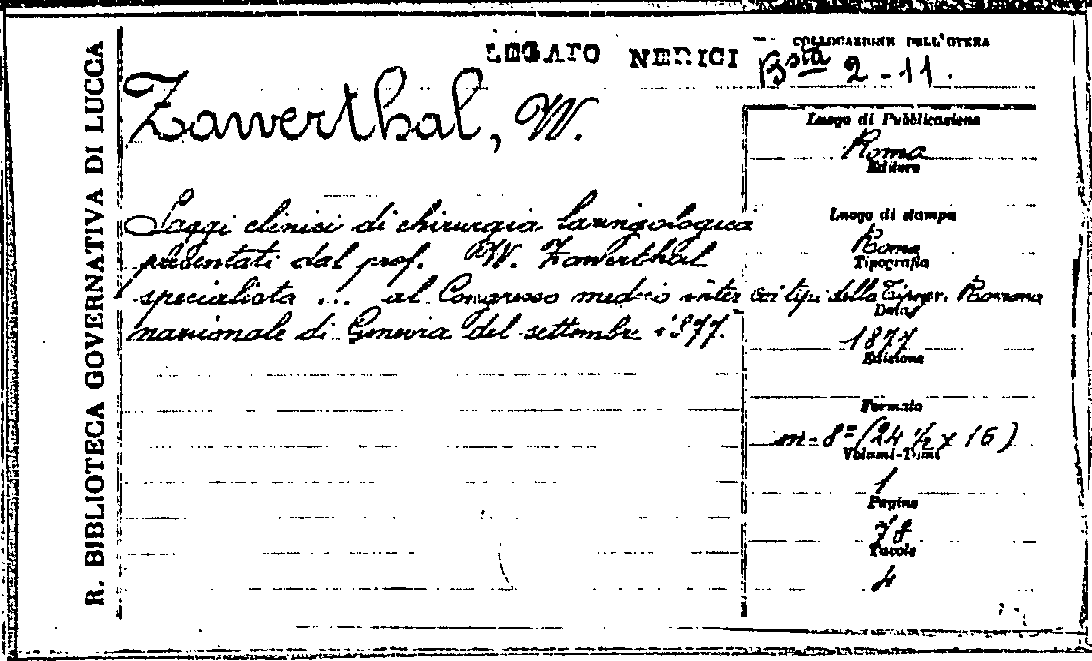 R. BIBLIOTECA GOVERNATIVA DI LUCCA
LEGATO NERICI
COLLOCAZIONE DELL'OPERA
Bsta 2-11.
Zawerthal, W.
Saggi clinici di chirurgia laringologica
presentati dal prof. W. Zawerthal
specialista ... al Congresso medico inter
nazionale di Genevia del settembre 1877.
Luogo di Pubblicazione
Roma
Editore
Luogo di stampa
Roma
Tipografia
coi tipi della Tipogr. Romana
Data
1877
Edizione
Formato
in-8° (24 ½ x 16)
Volumi-Tomi
1
Pagine
78
Tavole
4